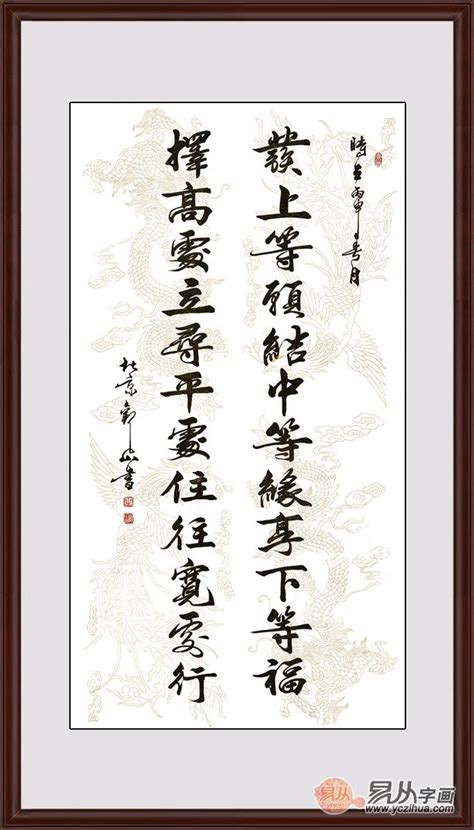 時在丙申月
發上等願結中等緣享下等福
擇高處立尋平處住往寬處行
北京山書
易从字画
www.yczihua.com